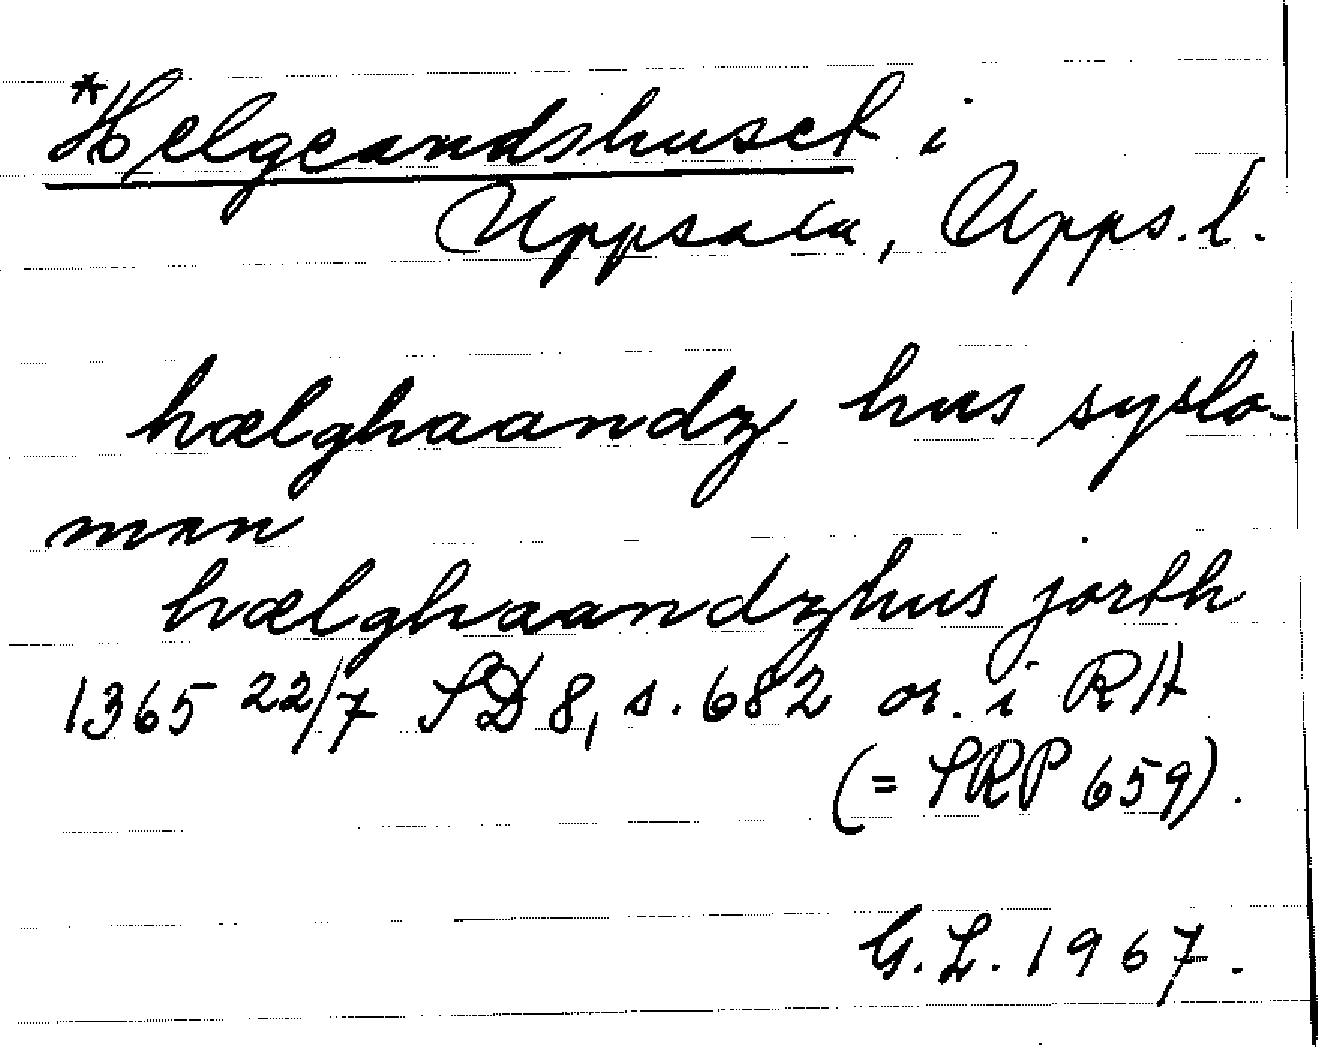 *Helgeandshuset i
Uppsala, Upps. l.
hælghaandz hus syslo-
man
hælghaandzhus jorth
1365 22/7 SD 8, s. 682 or. i RA
(= SRP 659).
G. L. 1967.